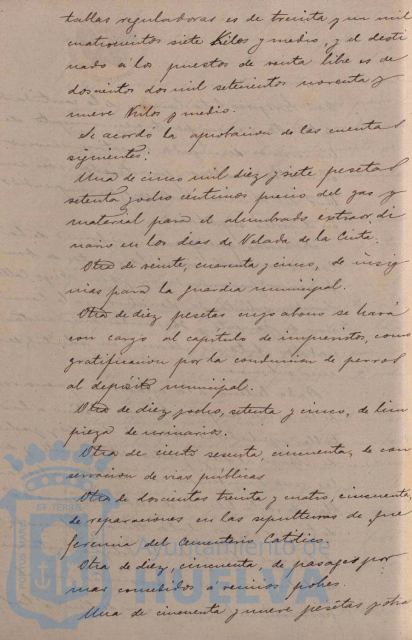 tablas reguladoras es de treinta y un mil
cuatrocientos siete Kilos y medio, y el desti
nado á los puestos de venta libre es de
doscientos dos mil setecientos noventa y
nueve Kilos y medio.
Se acordó la aprobacion de las cuentas
siguientes:
Una de cinco mil diez y siete pesetas
setenta y ocho céntimos precio del gas y
material para el alumbrado extraordi
nario en los dias de Velada de la Cinta.
Otra de veinte, cuarenta y cinco, de insig
nias para la guardia municipal.
Otra de diez pesetas cuyo abono se hará
con cargo al capítulo de imprevistos, como
gratificacion por la conduccion de perros
al depósito municipal.
Otra de diez y ocho, setenta y cinco, de lim
pieza de urinarios.
Otra de ciento sesenta, cincuenta, de con
servacion de vias públicas
Otra de doscientos treinta y cuatro, cincuenta,
de reparaciones en las sepulturas de pre
ferencia del Cementerio Católico.
Otra de diez, cincuenta, de pasages por
mar concedidos á vecinos pobres.
Una de cincuenta y nueve pesetas y otra
Ayuntamiento de
HUELVA